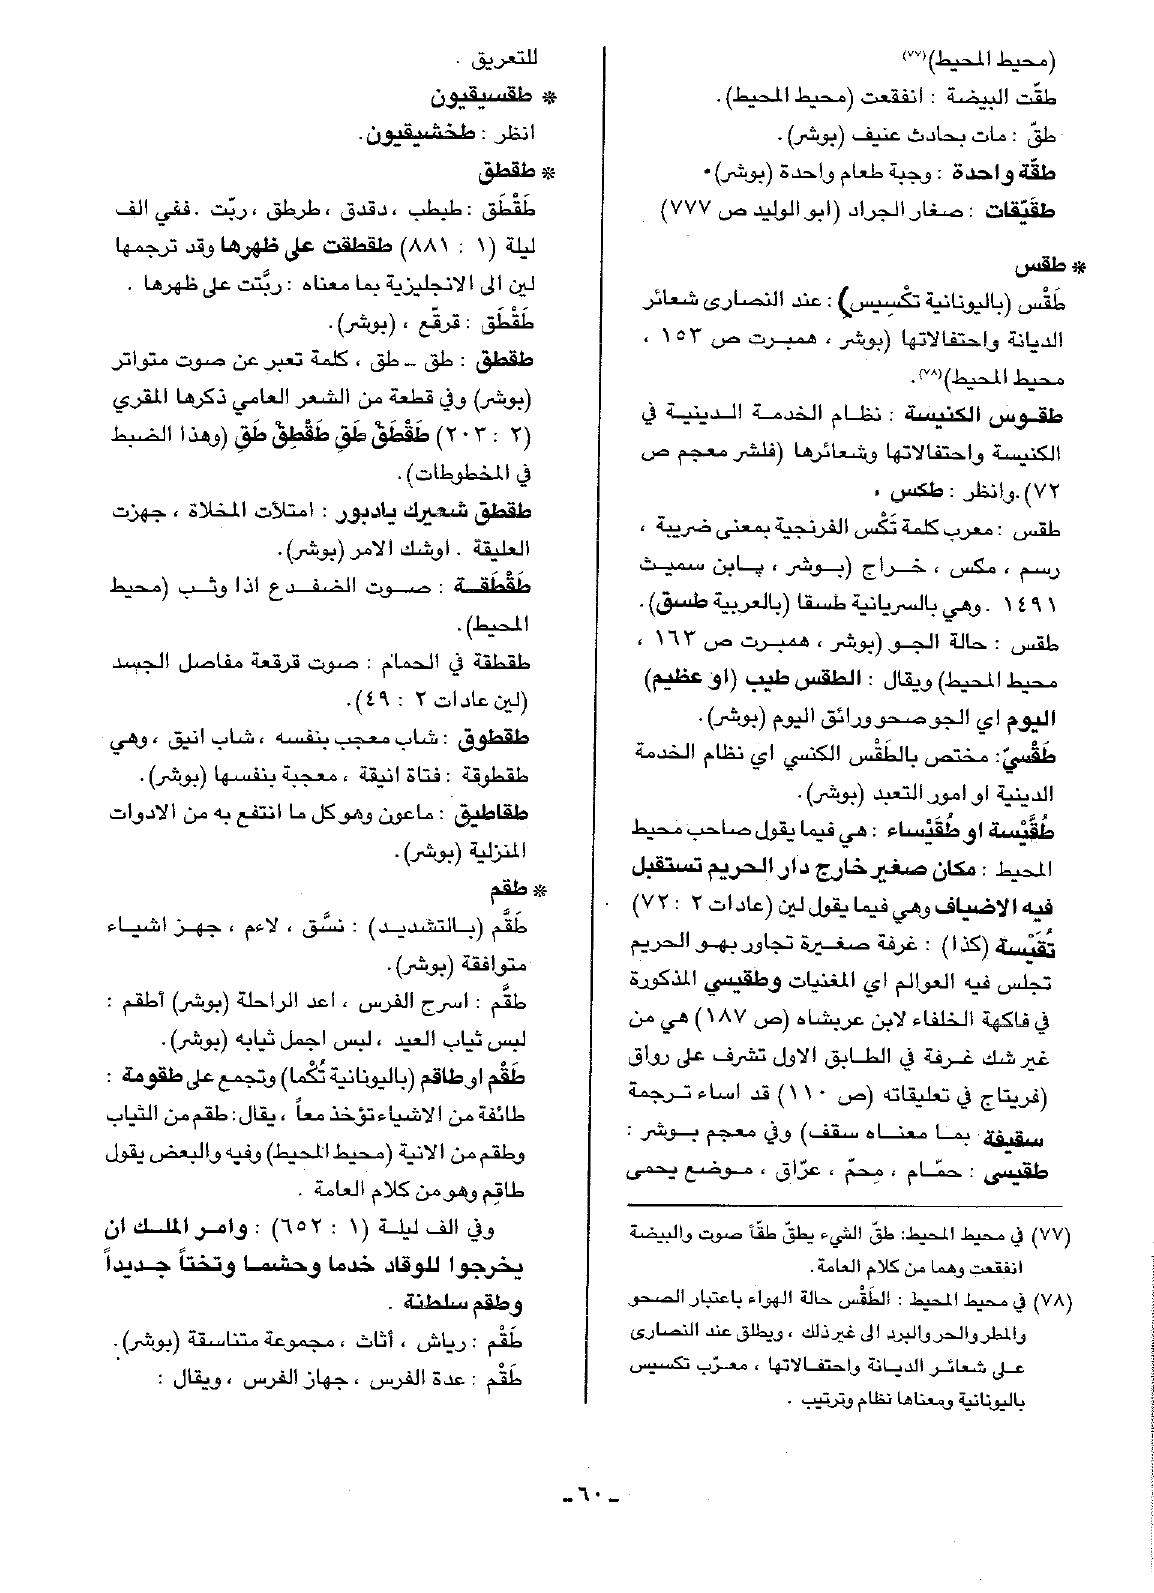 (محيط المحيط)(٧٧)
طقّت البيضة : انفقعت (محيط المحيط).
طقّ : مات بحادث عنيف (بوشر).
طقّة واحدة : وجبة طعام واحدة (بوشر).
طقَيّقات : صغار الجراد (ابو الوليد ص ٧٧٧)
* طقس
طَقْس (باليونانية تكْسِيس) : عند النصارى شعائر
الديانة واحتفالاتها (بوشر ، همبرت ص ١٥٣ ،
محيط المحيط)(٧٨).
طقوس الكنيسة : نظام الخدمة الدينية في
الكنيسة واحتفالاتها وشعائرها (فلشر معجم ص
٧٢). وانظر : طكس .
طقس : معرب كلمة تَكْس الفرنجية بمعنى ضريبة ،
رسم ، مكس ، خراج (بوشر ، پاين سميث
١٤٩١ . وهي بالسريانية طسقا (بالعربية طسق).
طقس : حالة الجو (بوشر ، همبرت ص ١٦٣ ،
محيط المحيط) ويقال : الطقس طيب (او عظيم)
اليوم اي الجو صحو ورائق اليوم (بوشر).
طَقْسيّ : مختص بالطَقْس الكنسي اي نظام الخدمة
الدينية او امور التعبد (بوشر).
طُقَّيْسة او طُقَيْساء : هي فيما يقول صاحب محيط
المحيط : مكان صغير خارج دار الحريم تستقبل
فيه الاضياف وهي فيما يقول لين (عادات ٢ : ٧٢)
تُقَيْسة (كذا) : غرفة صغيرة تجاور بهو الحريم
تجلس فيه العوالم اي المغنيات وطقيسي المذكورة
في فاكهة الخلفاء لابن عربشاه (ص ١٨٧) هي من
غير شك غرفة في الطابق الاول تشرف على رواق
(فريتاج في تعليقاته (ص ١١٠) قد اساء ترجمة
سقيفة بما معناه سقف) وفي معجم بوشر :
طقيسي : حمّام ، محمّ ، عرّاق ، موضع يحمى
(٧٧) في محيط المحيط: طقّ الشيء يطقّ طقّاً صوت والبيضة
انفقعت وهما من كلام العامة.
(٧٨) في محيط المحيط : الطَقْس حالة الهواء باعتبار الصحو
والمطر والحر والبرد الى غير ذلك ، ويطلق عند النصارى
على شعائر الديانة واحتفالاتها ، معرّب تكسيس
باليونانية ومعناها نظام وترتيب .
للتعريق .
* طقسيقيون
انظر : طخشيقيون.
* طقطق
طَقْطَق : طبطب ، دقدق ، طرطق ، ربّت . ففي الف
ليلة (١ : ٨٨١) طقطقت على ظهرها وقد ترجمها
لين الى الانجليزية بما معناه : ربَّتت على ظهرها .
طَقْطَق : قرقّع ، (بوشر).
طقطق : طق ــ طق ، كلمة تعبر عن صوت متواتر
(بوشر) وفي قطعة من الشعر العامي ذكرها المقري
(٢ : ٢٠٣) طَقْطَقْ طَقِ طَقْطِقْ طَقِ (وهذا الضبط
في المخطوطات).
طقطق شعيرك يادبور : امتلأت المخلاة ، جهزت
العليقة . اوشك الامر (بوشر).
طَقْطَقة : صوت الضفدع اذا وثب (محيط
المحيط).
طقطقة في الحمام : صوت قرقعة مفاصل الجسد
(لين عادات ٢ : ٤٩).
طقطوق : شاب معجب بنفسه ، شاب انيق ، وهي
طقطوقة : فتاة انيقة ، معجبة بنفسها (بوشر).
طقاطيق : ماعون وهو كل ما انتفع به من الادوات
المنزلية (بوشر).
* طقم
طَقَّم (بالتشديد) : نسَّق ، لاءم ، جهز اشياء
متوافقة (بوشر).
طقَّم : اسرج الفرس ، اعد الراحلة (بوشر) أطقم :
لبس ثياب العيد ، لبس اجمل ثيابه (بوشر).
طَقْم او طاقم (باليونانية تُكْما) وتجمع على طقومة :
طائفة من الاشياء تؤخذ معاً ، يقال : طقم من الثياب
وطقم من الانية (محيط المحيط) وفيه والبعض يقول
طاقِم وهو من كلام العامة .
وفي الف ليلة (١ : ٦٥٢) : وامر الملك ان
يخرجوا للوقاد خدما وحشما وتختاً جديداً
وطقم سلطنة .
طَقْم : رياش ، أثاث ، مجموعة متناسقة (بوشر).
طَقْم : عدة الفرس ، جهاز الفرس ، ويقال :
ـ ٦٠ ـ